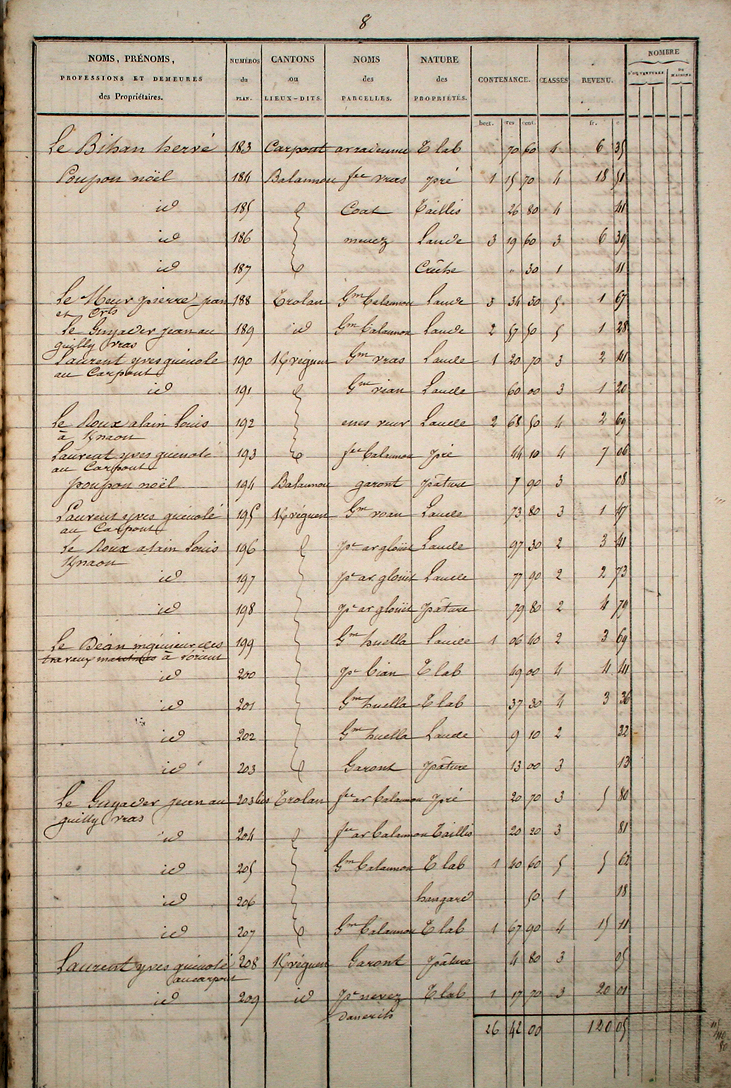 8
NOMS, PRÉNOMS, PROFESSIONS ET DEMEURES des Propriétaires. NUMÉROS du PLAN. CANTONS ou LIEUX-DITS. NOMS des PARCELLES. NATURE des PROPRIÉTÉS. CONTENANCE. CLASSES REVENU. NOMBRE D'OUVERTURES DE MAISONS
hect. ares cent. fr. c.
Le Bihan hervé 183 Carpont T lab 70 60 4 6 35
Poupon noël 184 Balannou foe vras pré 1 15 70 4 18 51
id 185 Coat Taillis 26 80 4 41
id 186 menez Lande 3 19 60 3 6 39
id 187 Crêche " 30 1 11
Le Meur pierre jean 188 Trolan Gm Calannou Lande 3 34 30 5 1 67
et Crts
Le Guyader jean au 189 id Gm Calannou Lande 2 57 50 5 1 28
guilly vras
Laurent yves guénolé 190 Kvéguen Gm vras Lande 1 20 70 3 2 41
au Carpont
id 191 Gm vian Lande 60 00 3 1 20
Le Roux alain Louis 192 enes veur Lande 2 68 50 4 2 69
à Knaou
Laurent yves guénolé 193 foe Calannou pré 44 10 4 7 06
au Carpont
poupon noël 194 Balannou garont pâture 7 90 3 08
Laurent yves guénolé 195 Kvéguen Gm vian Lande 73 80 3 1 47
au Carpont
Le Roux alain Louis 196 pc ar glouit Lande 97 30 2 3 41
Knaou
id 197 pc ar glouit Lande 77 90 2 2 73
id 198 pc ar glouit pâture 79 80 2 4 79
Le Dean ingénieur des 199 Gm huella Lande 1 06 40 2 3 69
travaux maritimes à Lorient
id 200 pc bian T lab 49 00 4 4 41
id 201 Gm huella T lab 37 30 4 3 36
id 202 Gm huella Lande 9 10 2 32
id 203 Garont pâture 13 00 3 13
Le Guyader jean au 203 bis Trolan foe ar Calannou pré 20 70 3 5 80
guilly vras
id 204 foe ar Calannou Taillis 20 20 3 81
id 205 Gm Calannou T lab 1 40 60 5 5 62
id 206 hangard 50 1 18
id 207 Gm Calannou T lab 1 67 90 4 15 11
Laurent yves guénolé 208 Kvéguen Garont pâture 4 80 3 05
au carpont
id 209 id pc nevez T lab 1 17 70 3 20 01
26 42 00 120 05